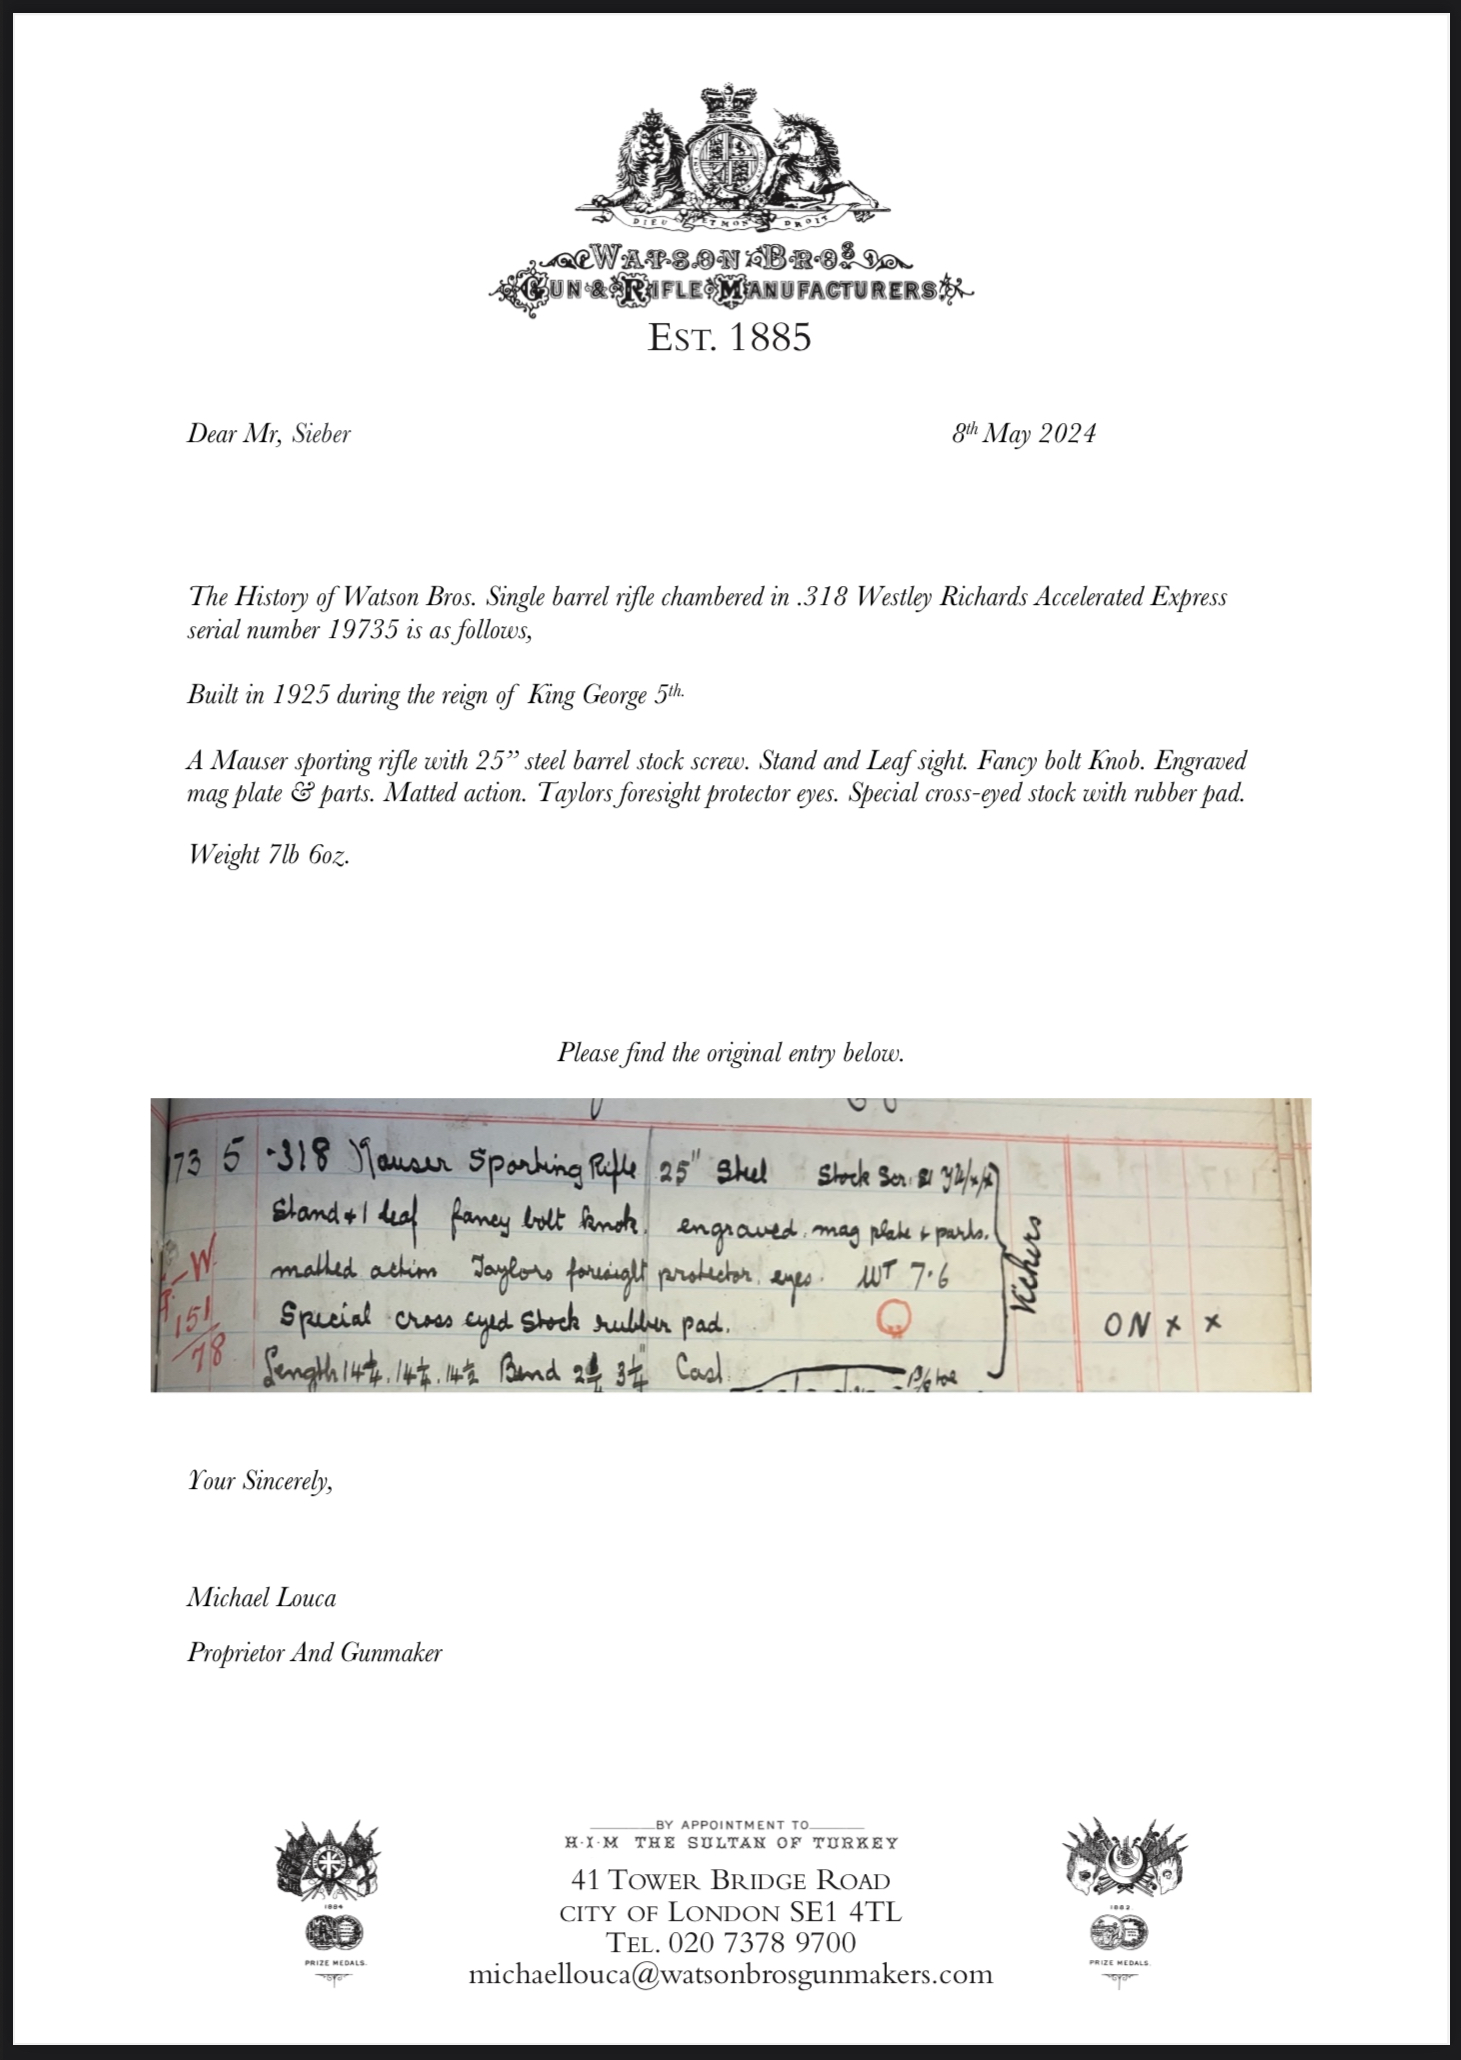 DIEU ET MON DROIT
WATSON BROS
GUN & RIFLE MANUFACTURERS
EST. 1885
Dear Mr, Sieber 8th May 2024
The History of Watson Bros. Single barrel rifle chambered in .318 Westley Richards Accelerated Express
serial number 19735 is as follows,
Built in 1925 during the reign of King George 5th.
A Mauser sporting rifle with 25” steel barrel stock screw. Stand and Leaf sight. Fancy bolt Knob. Engraved
mag plate & parts. Matted action. Taylors foresight protector eyes. Special cross-eyed stock with rubber pad.
Weight 7lb 6oz.
Please find the original entry below.
73 5 .318 Mauser Sporting Rifle 25" Steel Stock Scr.
Stand + 1 leaf fancy bolt knob. engraved. mag plate + parts.
matted action Taylors foresight protector. eyes. WT 7.6
Special cross eyed stock rubber pad.
Length 14 1/4. 14 1/4. 14 1/2 Bend 3 1/4" Cast.
toe
Vickers
ON x x
W
151
78
Your Sincerely,
Michael Louca
Proprietor And Gunmaker
BY APPOINTMENT TO
H·I·M THE SULTAN OF TURKEY
41 TOWER BRIDGE ROAD
CITY OF LONDON SE1 4TL
TEL. 020 7378 9700
michaellouca@watsonbrosgunmakers.com
1884
PRIZE MEDALS.
1882
PRIZE MEDALS.